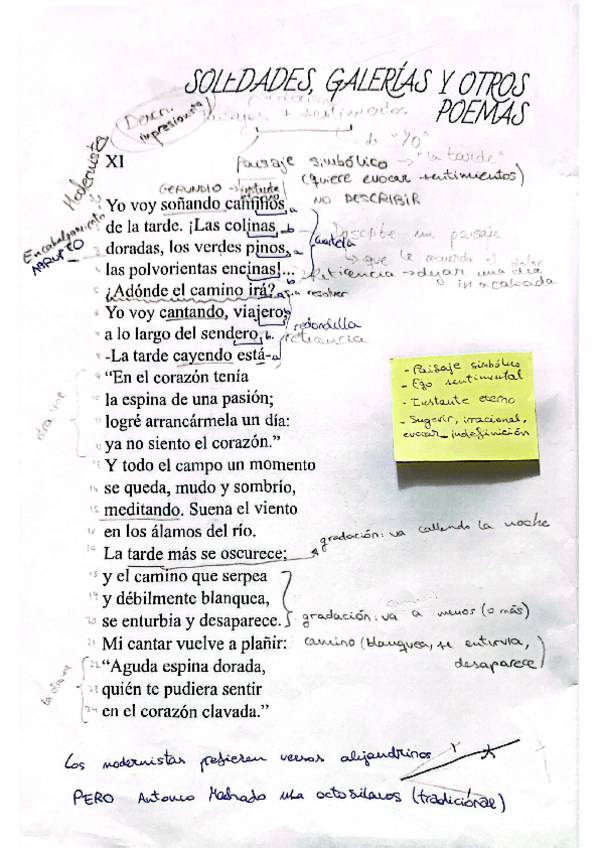 SOLEDADES, GALERÍAS Y OTROS
POEMAS
Descr.
impresionista
Modernista
paisajes + sentimientos
de "YO"
XI
paisaje simbólico → "la tarde"
(quiere evocar sentimientos)
NO DESCRIBIR
GERUNDIO →
Encabalgamiento
ABRUPTO
Yo voy soñando caminos a
de la tarde. ¡Las colinas b
doradas, los verdes pinos, a
las polvorientas encinas!... b
cuarteta
Describe un paisaje
que le recuerda el dolor
Reticencia → dejar una idea
inacabada
5 ¿Adónde el camino irá?
resolver
6 Yo voy cantando, viajero
7 a lo largo del sendero, b
redondilla
8 -La tarde cayendo está- a
reticencia
otra voz
9 "En el corazón tenía
la espina de una pasión;
logré arrancármela un día:
ya no siento el corazón."
- Paisaje simbólico
- Ego sentimental
- Instante eterno
- Sugerir, irracional,
evocar indefinición
13 Y todo el campo un momento
14 se queda, mudo y sombrío,
15 meditando. Suena el viento
16 en los álamos del río.
gradación: va callendo la noche
La tarde más se oscurece;
18 y el camino que serpea
19 y débilmente blanquea,
20 se enturbia y desaparece.
gradación: va a menos (o más)
21 Mi cantar vuelve a plañir:
camino (blanquea, se enturvia,
desaparece)
22 "Aguda espina dorada,
23 quién te pudiera sentir
24 en el corazón clavada."
Los modernistas prefieren versos alejandrinos
PERO Antonio Machado usa octosílabos (tradicional)